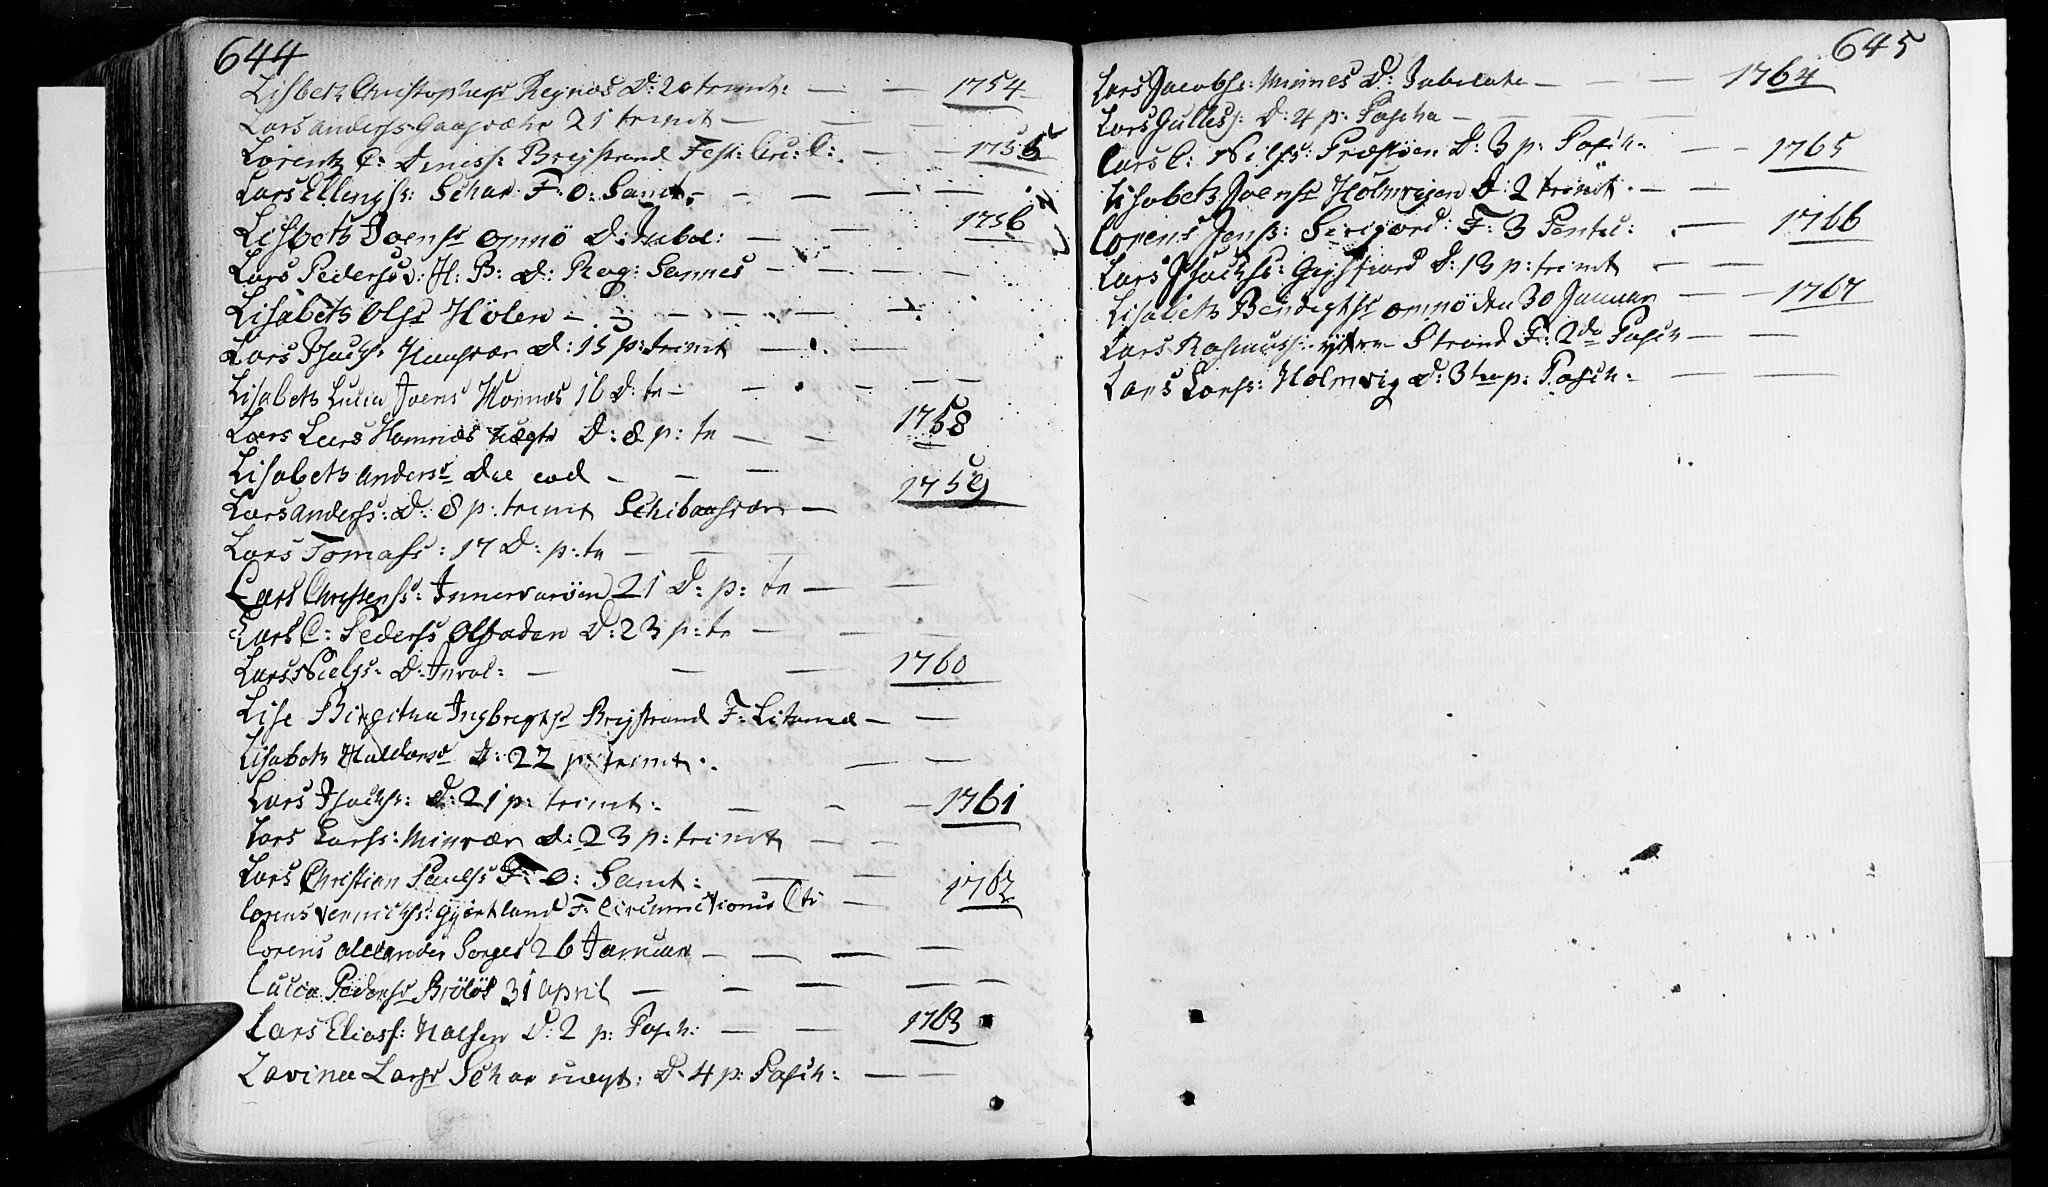 644
Lisbeth Christophers Reynæs D: 20 trinit: — — 1754
Lars Anders: Gaasvæhr 21 trinit — — —
Lorentz C: Diness: Breystrand Fest: Circ: C: — — 1755
Lars Ellingss: Schar F. O. Sanct. — — — —
Lisbeth Joensr Omnö D: Jubil: — — 1756
Lars Pederss: H: P: D: Rog: Sannes — — — —
Lisabeth Olsr Hölen — — — — — —
Lars Isachs. Haasvær D: 15 p: trinit — — —
Lisabeth Lucia Joens Hornæs 16 D: tr — — — — —
Lars Lars Hamnæs Wægte D: 8 p: tr — — 1758
Lisabeth Andersr Die eod — — —
Lars Anders: D: 8 p: trinit Schibaasvær — 1759
Lars Tomass: 17 D: p: tr — — —
Lars Christenss: Innervaröen 21 D: p: tr — —
Lars C: Pederss Olsaden D: 23 p: tr — — —
Lars Niels: D: Invoc: — — — 1760
Lise Birgitha Ingbregtsr Breystrand F: — —
Lisabeth Haldorsr D: 22 p: trinit. — —
Lars Isachs: D: 21 p: trinit: — — — 1761
Lars Larss: Minvær D: 23 p: trinit — —
Lars Christian Paulss F: O: Sanct: — — 1762
Lorens F: Circumcisionis Cti —
Lorens Alexander Sorges 26 Januar — — — —
Lucia Pedersr Brölös 31 April — — — — —
Lars Eliass: Halsen D: 2 p: Pasch: — — 1763
Lavina Larsr Schar wægt: D. 4 p: Pasch: — —
645
Lars Jacobs: Minnes D: Jubilate — — — 1764
Lars Gulless: D: 4 p: Pascha — — — —
Lars C: Nilss: Præstöen D: 3 p: Pasch: — — 1765
Lisabeth Joensr Holmvigen D: 2 trinit. — —
Lorens Jenss: F: 3 Pentec: — 1766
Lars Isachss: Geisfiord D: 13 p: trinit — —
Lisabeth Bendigtsr Omnö den 30 Januar — — 1767
Lars Rasmuss: ytre Strand F: 2da Pasch — — —
Lars Larss: Holmvig D: 3tia p: Pasch: — —